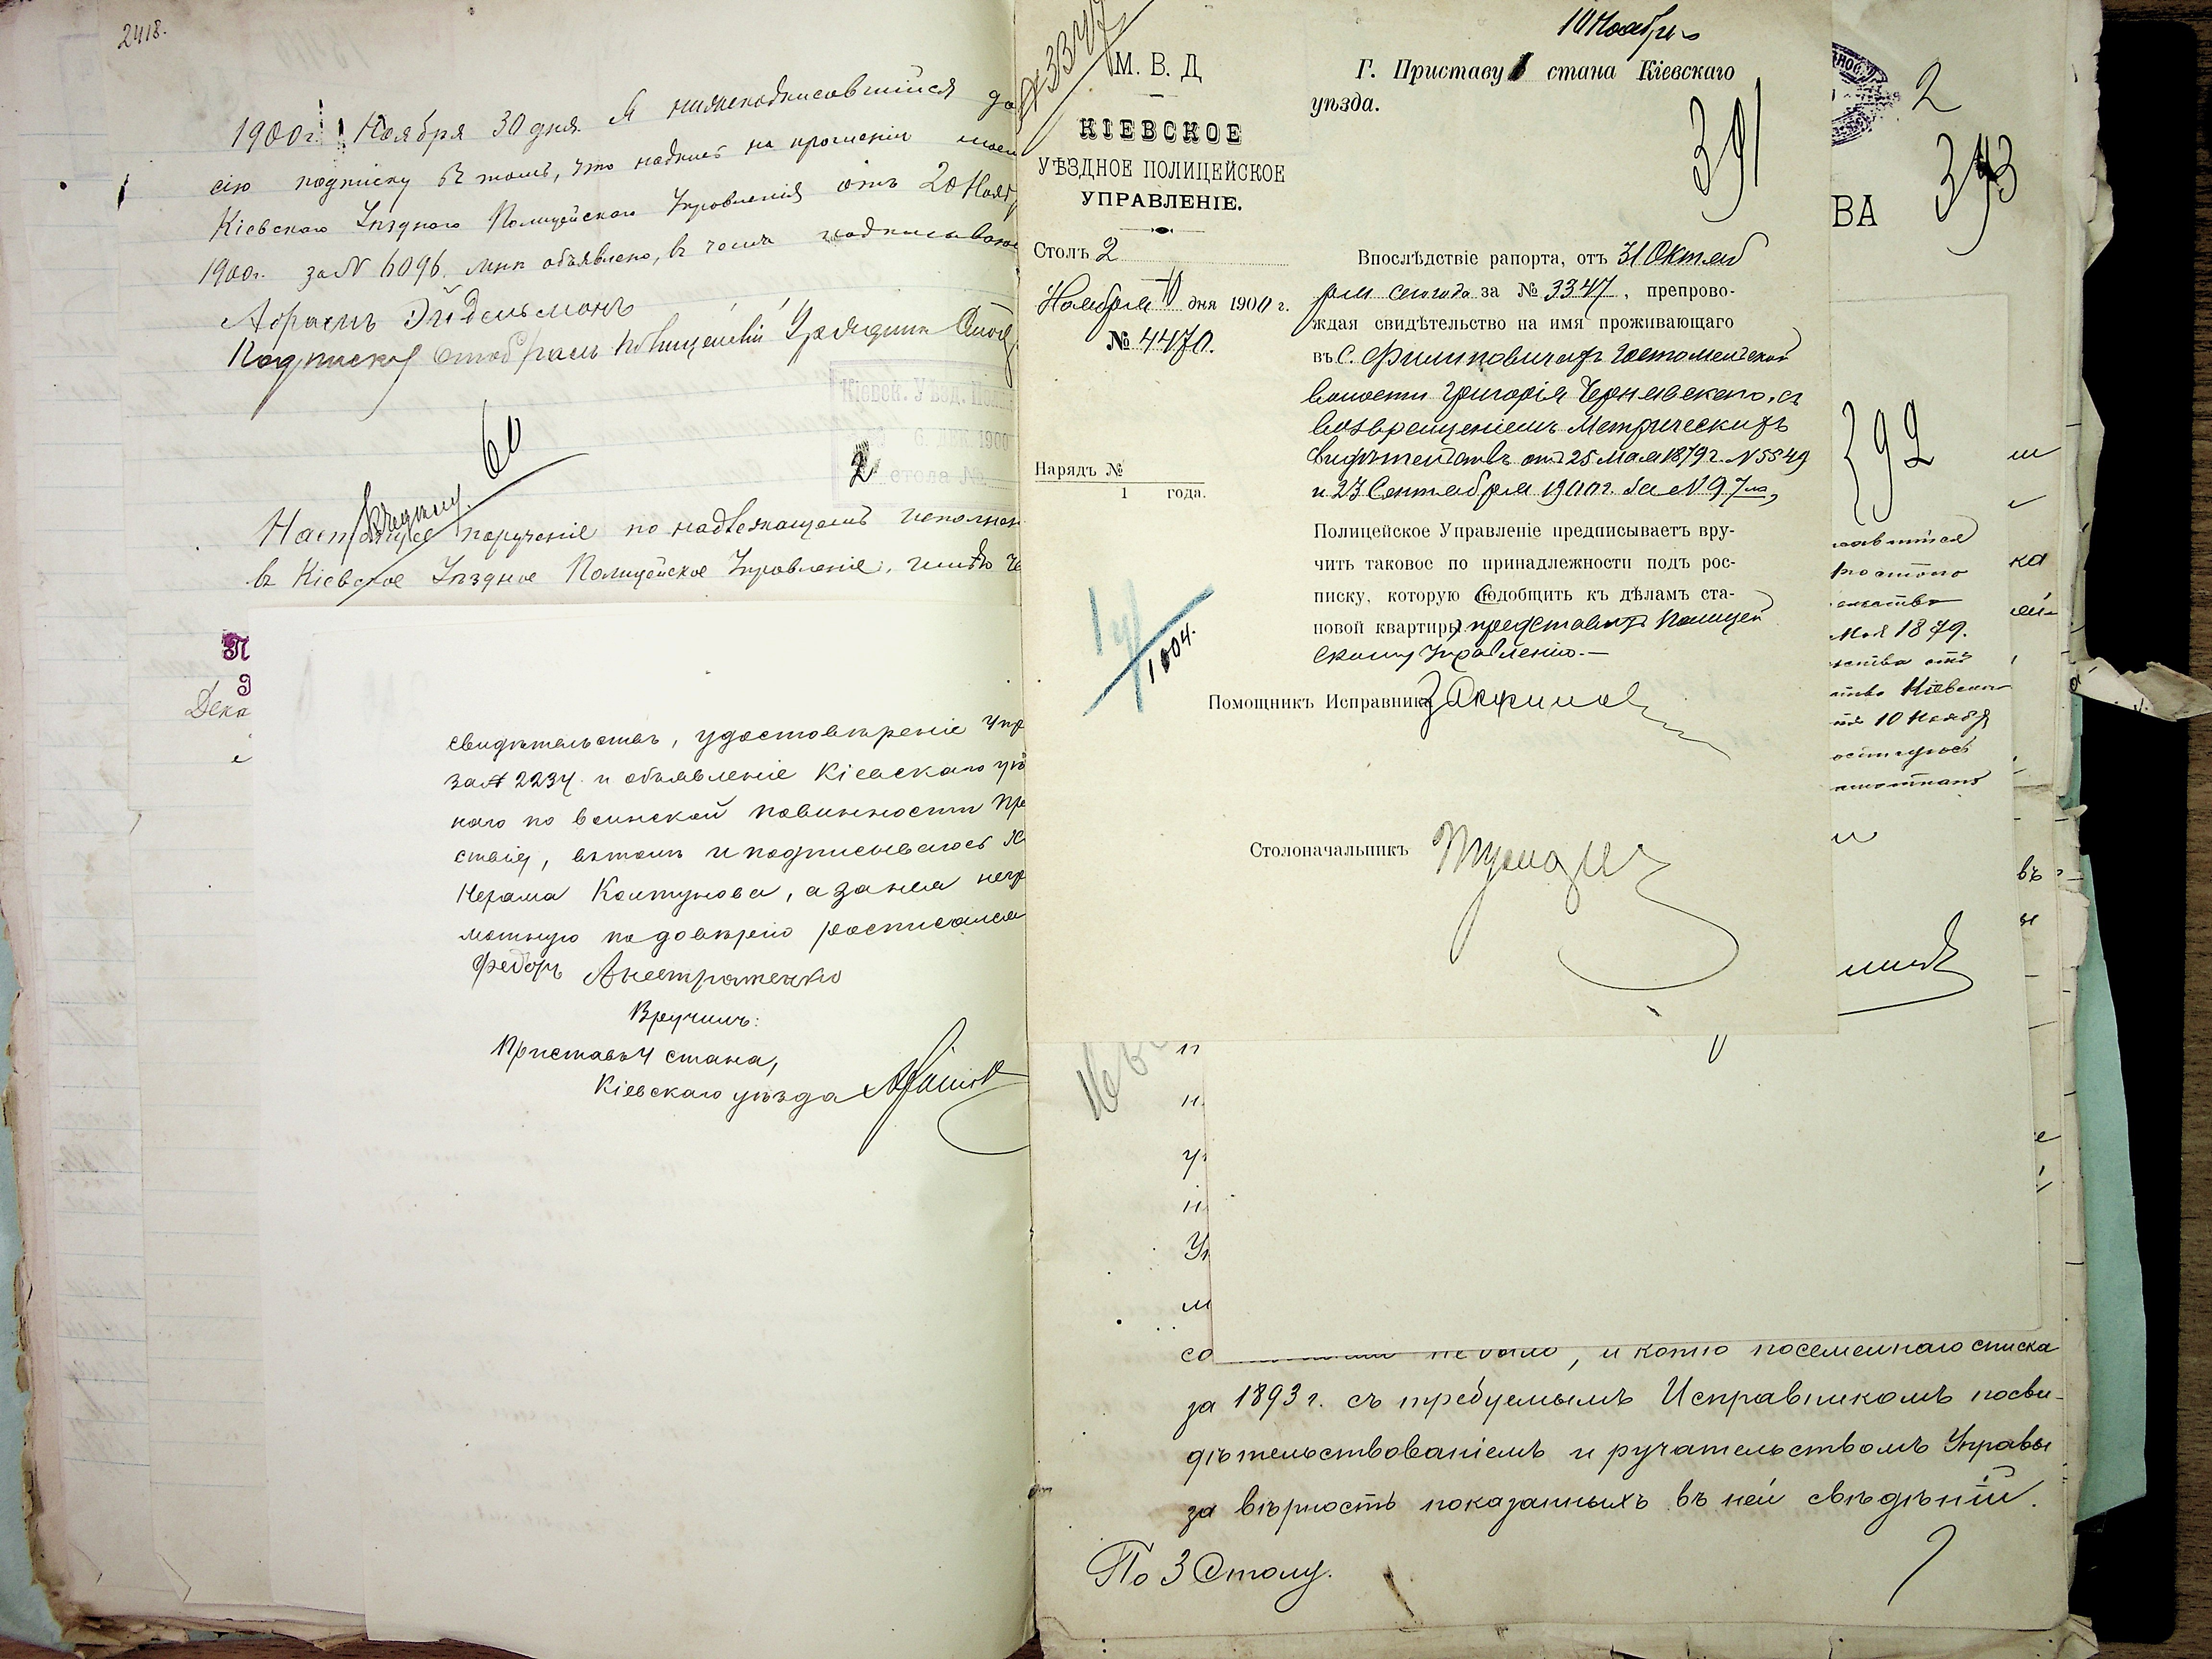 2418.
1900г. Ноября 30 дня Я нижеподписавшийся да
сію подписку въ томъ, что надпись на прошеніи моем
Кіевскаго Уѣзднаго Полицейскаго Управленія отъ 20 Нояб
1900г. за № 6096, мнѣ объявлено, въ чемъ подписываюс
Абрамъ Эйдельманъ
Подписку отобралъ Полицейскій Урядникъ
60
Кіевск. Уѣзд. Поли
6. ДЕК. 1900
2 стола №
порученіе по надлежащемъ исполнен
въ Кіевское Уѣздное Полицейское Управленіе.
П
Э
Дека
свидѣтельствъ, удостовѣреніе Упр
за № 2234 и объявленіе Кіевскаго уѣ
наго по воинской повинности Пр
ствія, въ томъ и подписываюсь Х
Нехама Колтунова, а за нея негр
мотную по довѣрію росписался
Федоръ
Вручилъ:
Приставъ 4 стана,
Кіевскаго уѣзда
№ 3347
М. В. Д
КІЕВСКОЕ
УѢЗДНОЕ ПОЛИЦЕЙСКОЕ
УПРАВЛЕНІЕ.
Столъ 2
Ноября 10 дня 1900 г.
№ 4470.
Нарядъ №
1 года.
1004.
10 Ноября
Г. Приставу стана Кіевскаго
уѣзда.
391
Впослѣдствіе рапорта, отъ 31 Октяб
ря сего года за № 3347, препрово-
ждая свидѣтельство на имя проживающаго
въ С. Филиповичахъ Гостомельской
волости Григорія Чернявскаго, съ
возвращеніемъ Метрическихъ
свидѣтельствъ отъ 25 Мая 1879 г. № 5549
и 23 Сентября 1900 г. за № 97
Полицейское Управленіе предписываетъ вру-
чить таковое по принадлежности подъ рос-
писку, которую подобщить къ дѣламъ ста-
новой квартиры представить Полицей
скому Управленію.—
Помощникъ Исправника
Столоначальникъ
2
393
ВА
392
Мая 1879.
ства отъ
Кіевскаго
10 Ноября
ка
въ
не было, и копію посемейнаго списка
за 1893 г. съ требуемымъ Исправникомъ посви-
дѣтельствованіемъ и ручательствомъ Управы
за вѣрность показанныхъ въ ней свѣдѣній.
По 3 Столу.